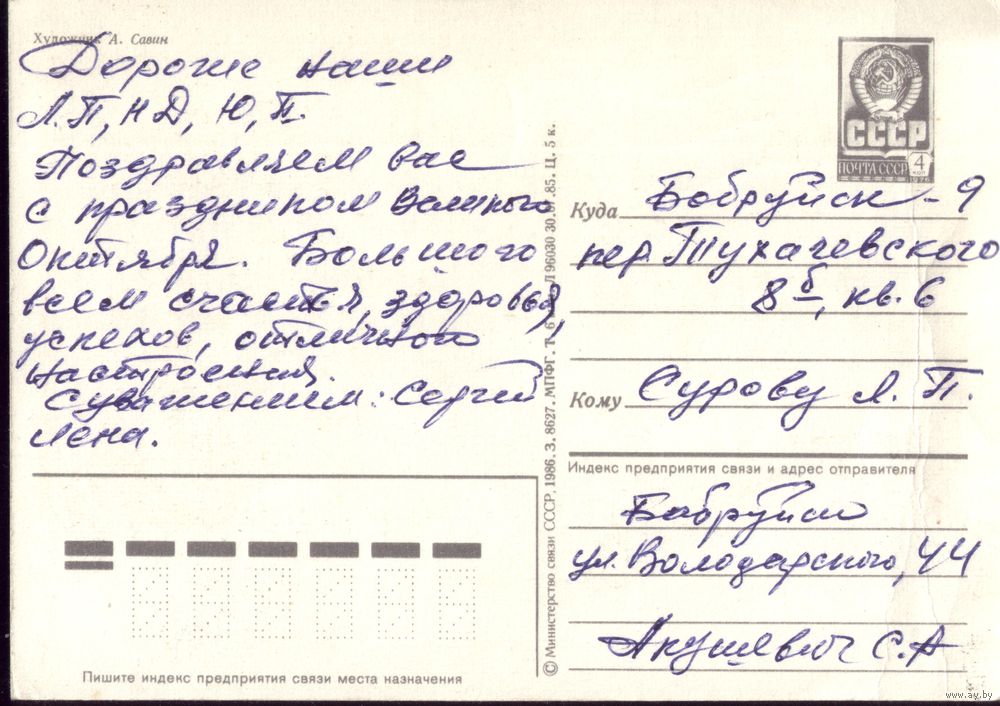 Художник А. Савин
Дорогие наши
Л.П, НД, Ю, П.
Поздравляем вас
с праздником Великого
Октября. Большого
всем счастья, здоровья,
успехов, отличного
настроения.
С уважением: Сергей
Лена.
СССР
ПОЧТА СССР 4 КОП
1976
Куда Бобруйск-9
пер. Тухачевского
8б, кв. 6
Кому Сурову Л. П.
Индекс предприятия связи и адрес отправителя
Бобруйск
ул. Володарского, 44
Акушевич С. А
© Министерство связи СССР, 1986. З. 8627. МПФГ. Т. 6 96030 30. 85. Ц. 5 к.
Пишите индекс предприятия связи места назначения
www.ay.by